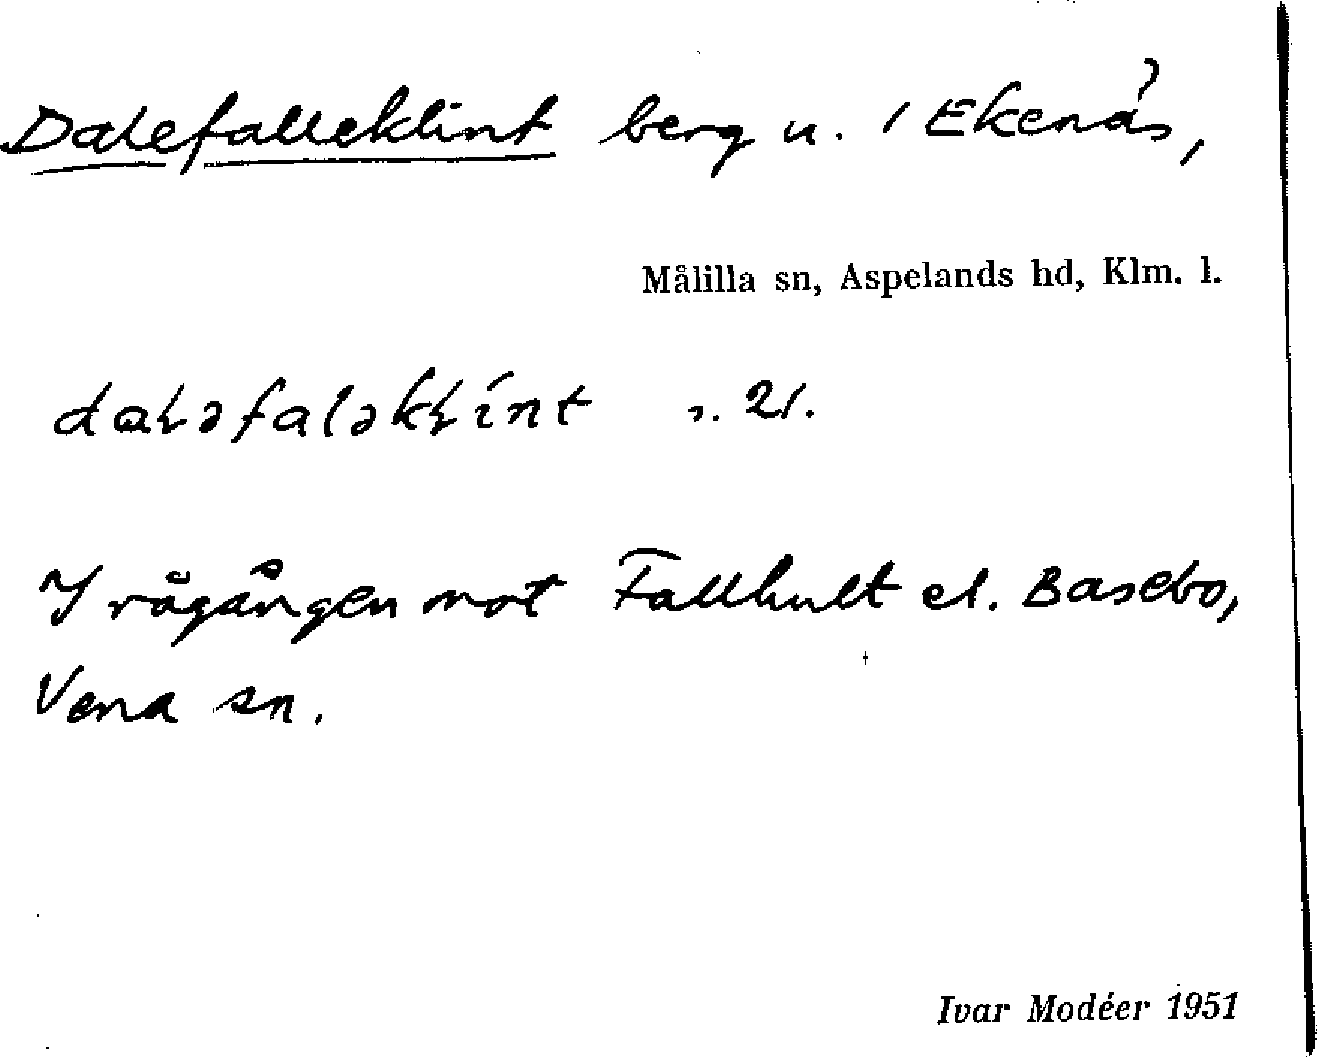 Dalefalleklint berg u. 1 Ekenäs,
Målilla sn, Aspelands hd, Klm. l.
s. 21.
I rågången mot Fallhult el. Basebo,
Vena sn.
Ivar Modéer 1951